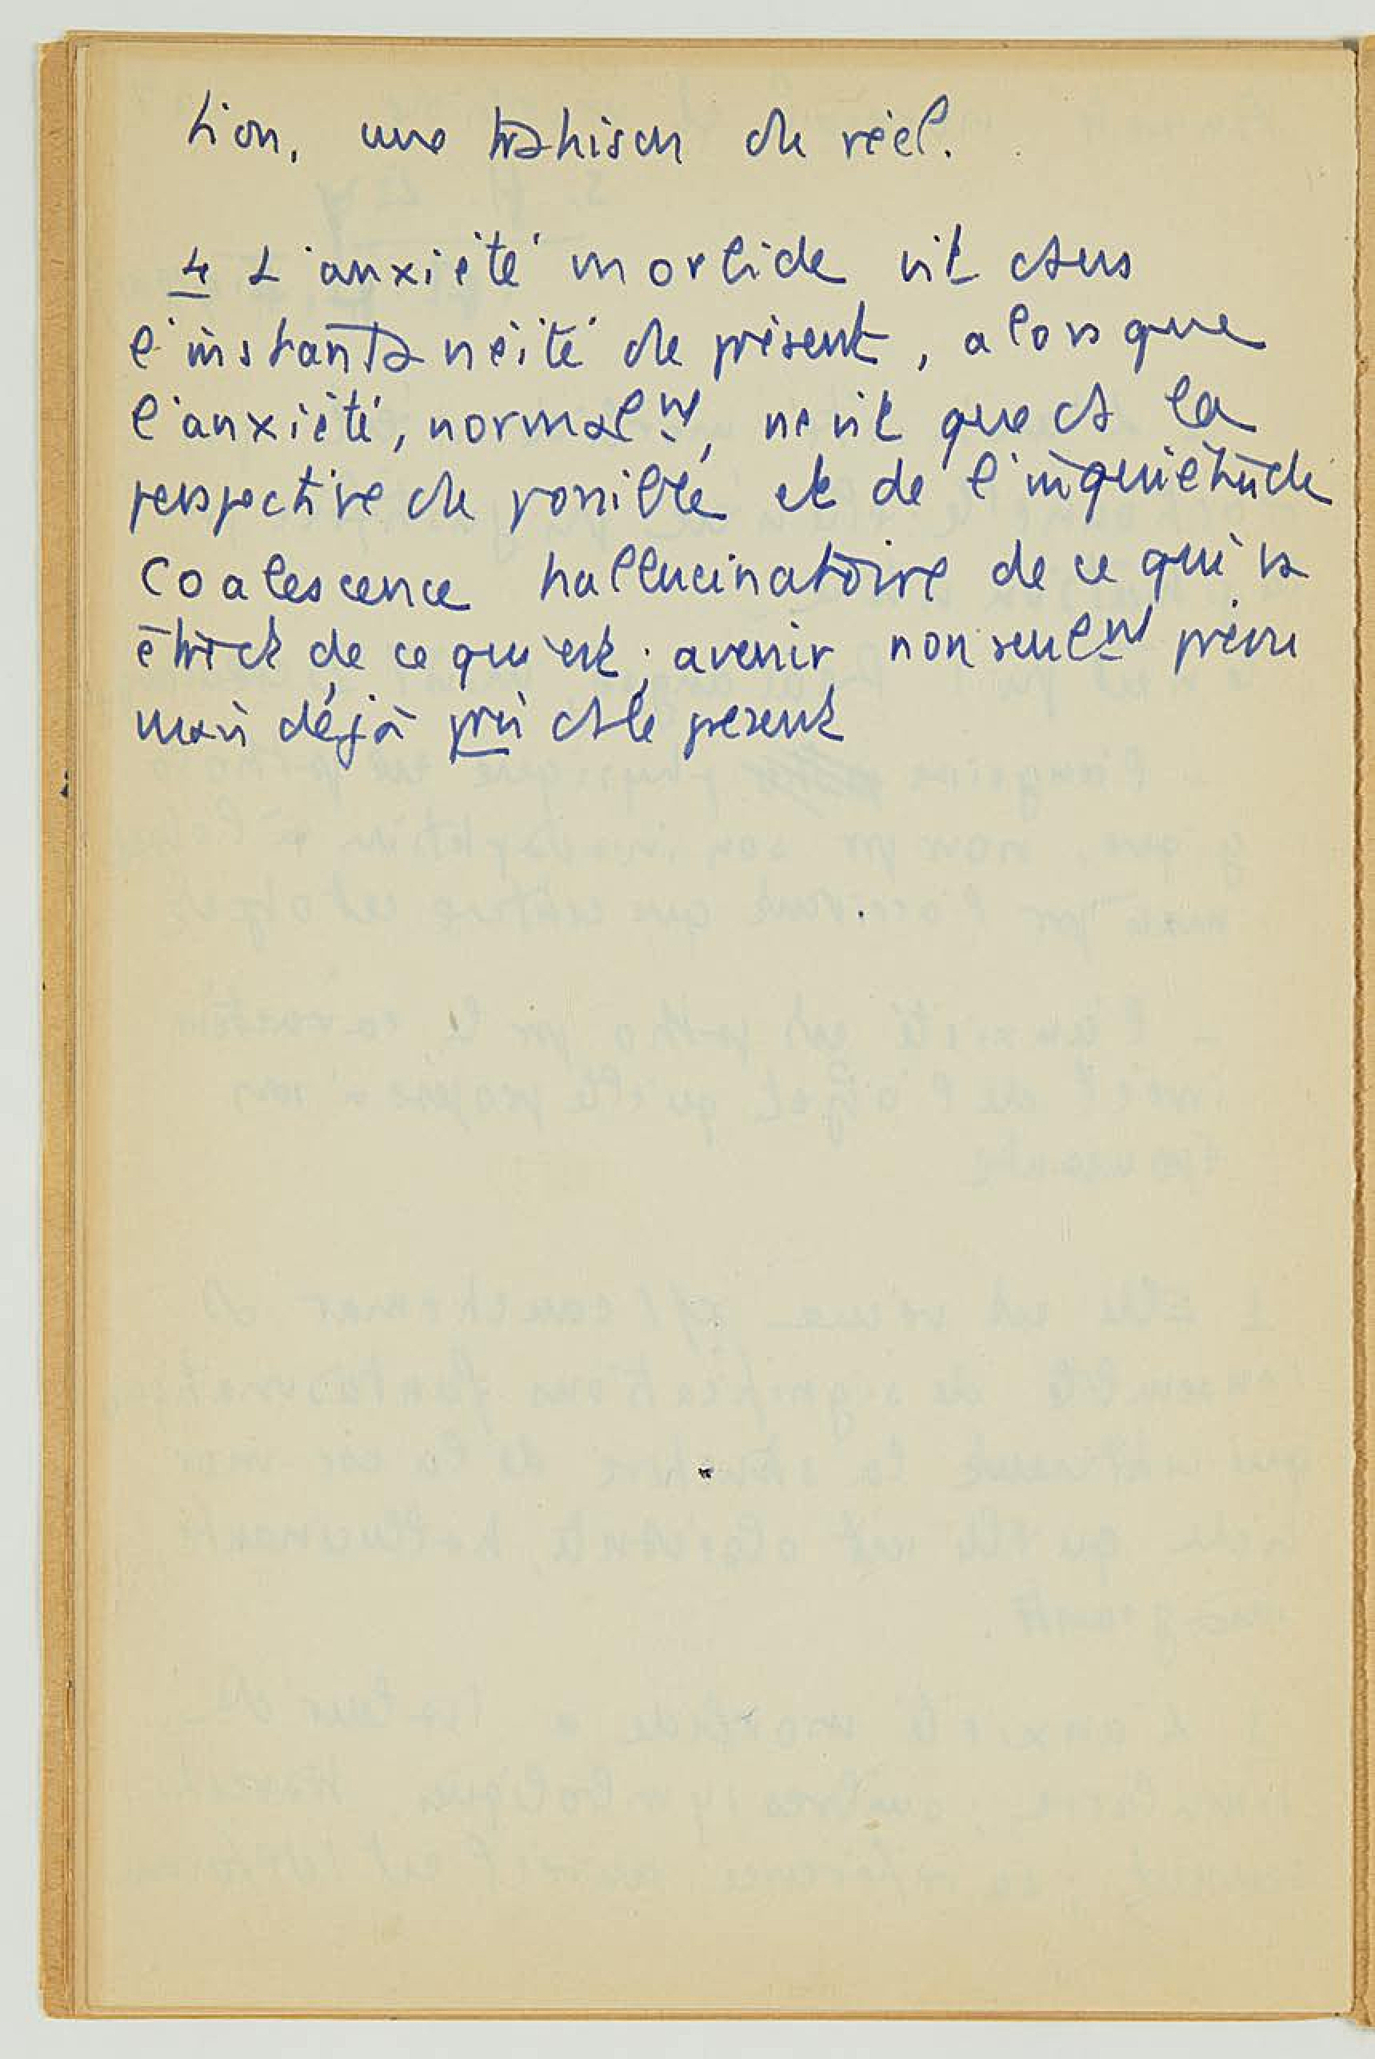 tion, une trahison du réel.
4 L'anxiété morbide vit dans
l'instantanéité du présent, alors que
l'anxiété, normalemt, ne vit que ds la
perspective du possible et de l'inquiétude
Coalescence hallucinatoire de ce qui va
être et de ce qui est; avenir non seulemt prévu
mais déjà pris ds le présent